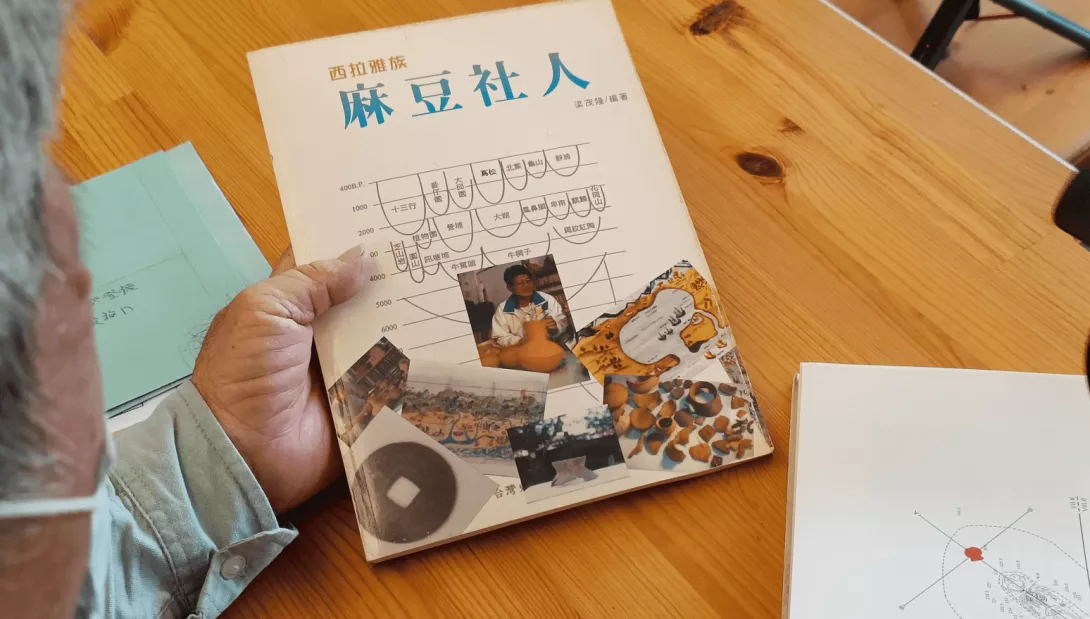 西拉雅族
麻豆社人
梁茂隆/編著
400B.P.
1000
2000
4000
5000
6000
十三行
番仔園
大邱園
蔦松
北葉
龜山
靜埔
植物園
營埔
大湖
鳳鼻頭
卑南
麒麟
花岡山
芝山岩
圓山
訊塘埔
牛罵頭
牛稠子
繩紋紅陶
台灣